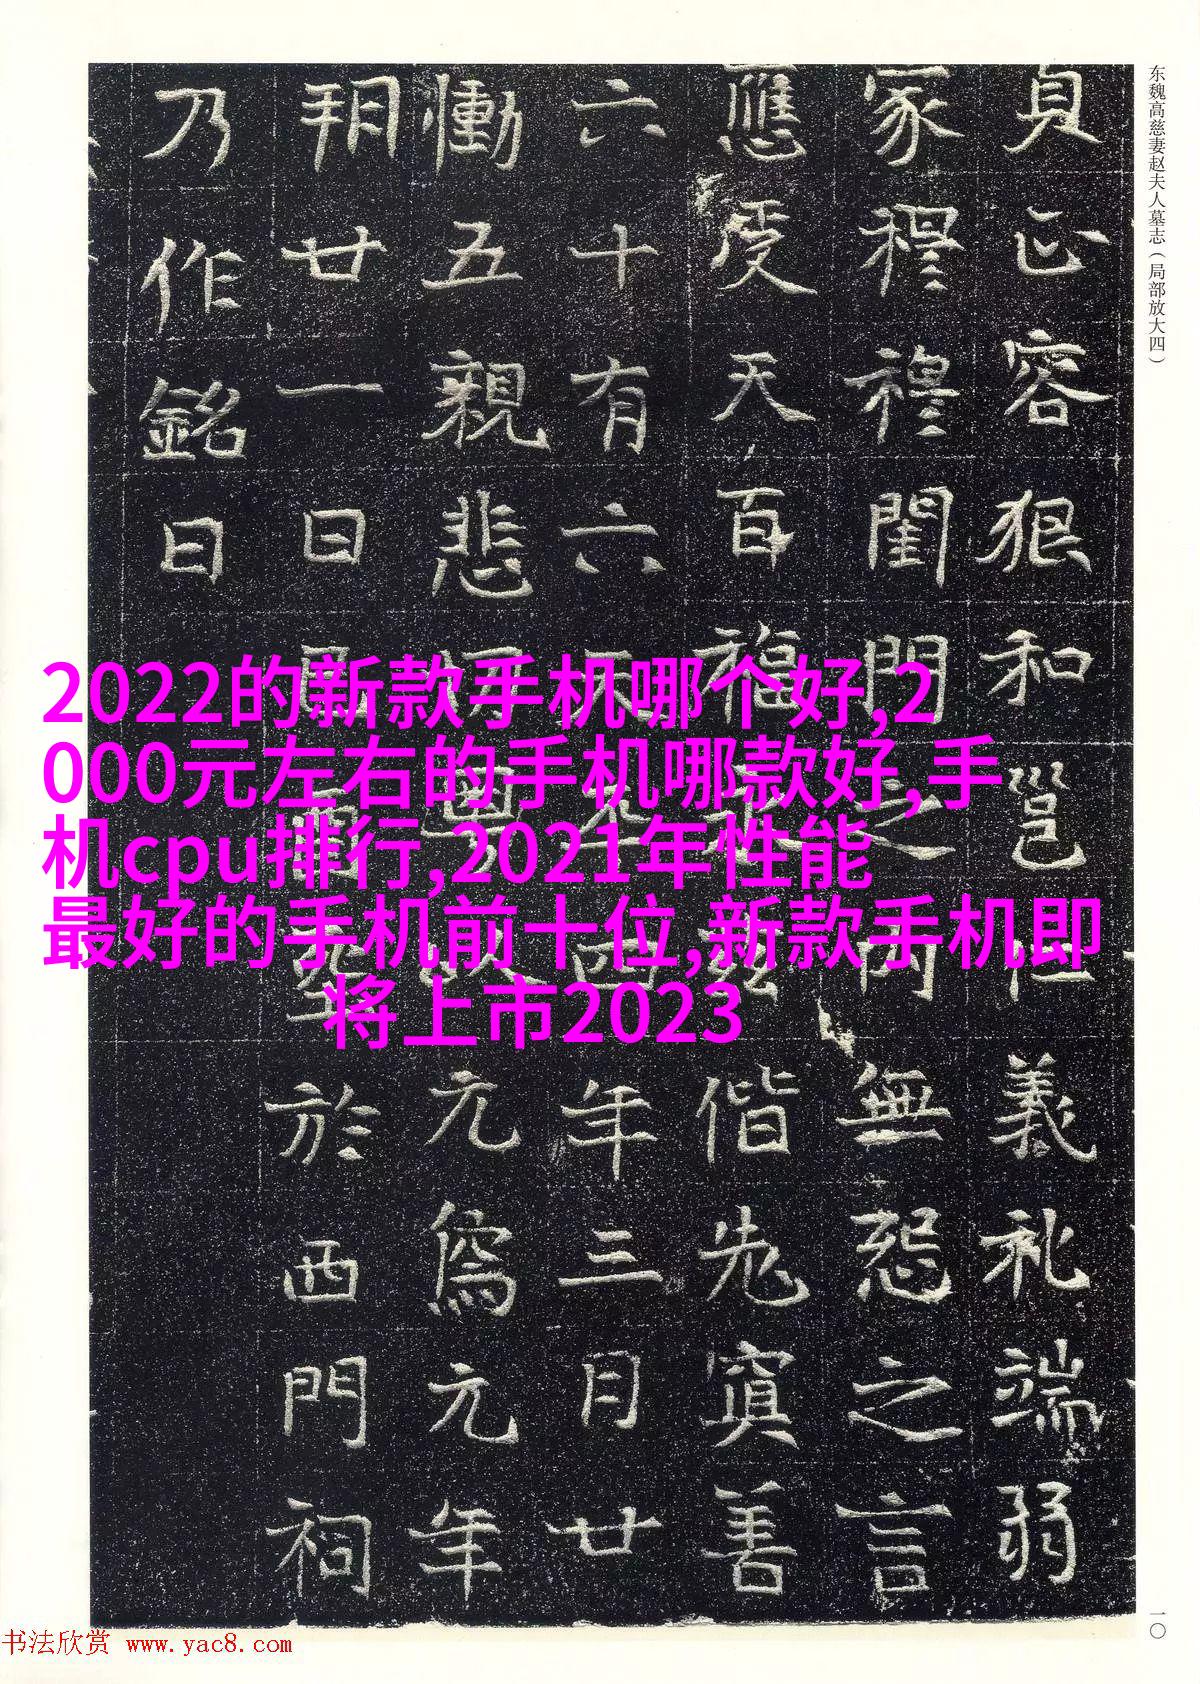 东魏高慈妻赵夫人墓志（局部放大四）
貞正容狠和邕仁義礼端弱
家穆穆閨門之内無怨之言
應受天百福偕先寘善
六十有六四年三月廿
慟五親悲元象元年
朔廿一日於西門祠
乃作銘曰
2022的新款手机哪个好,2
000元左右的手机哪款好,手
机cpu排行,2021年性能
最好的手机前十位,新款手机即
将上市2023
一〇
书法欣赏 www.yac8.com